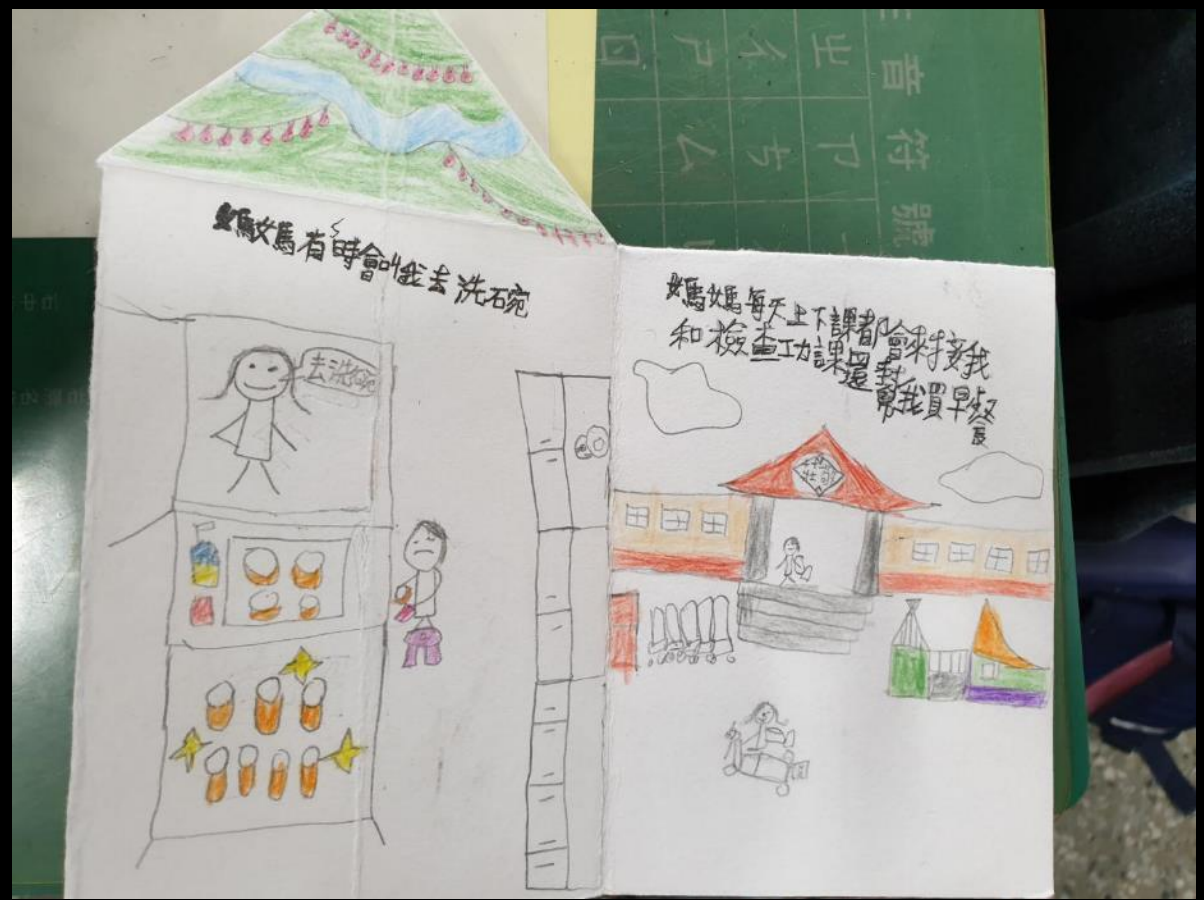 媽媽有時會叫我去洗碗
去洗碗
媽媽每天上下課都會來接我
和檢查功課還
幫我買早餐
音符號
ㄓㄔ
ㄕ
ㄖ
ㄗ
ㄘ
ㄙ